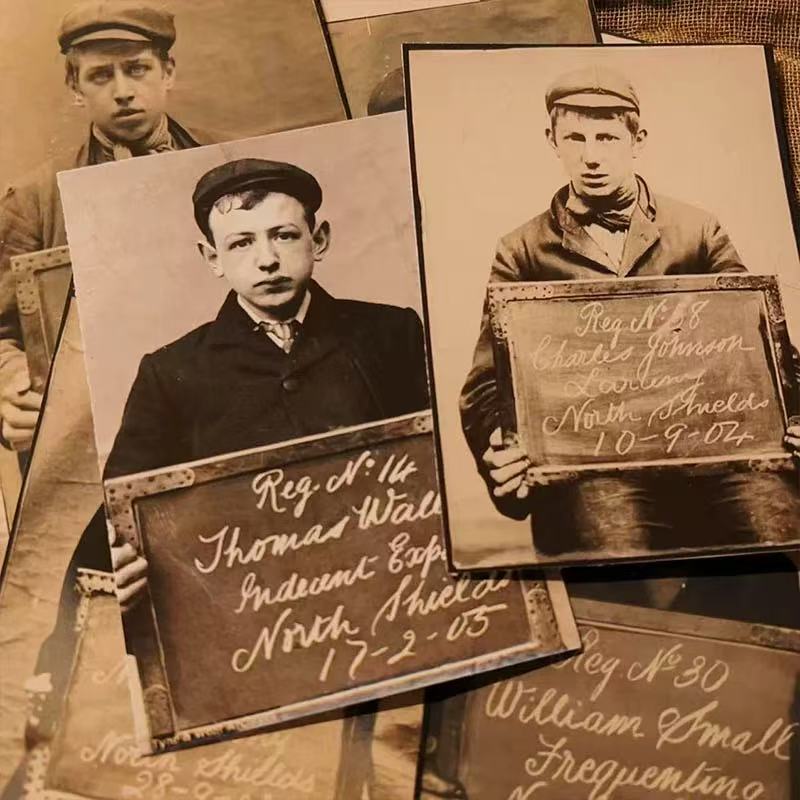 Reg. No: 14
Thomas Wall
Indecent Exp
North Shields
17-2-05
Reg No: 38
Charles Johnson
Larceny
North Shields
10-9-04
Reg No 30
William Small
Frequenting
North Shields